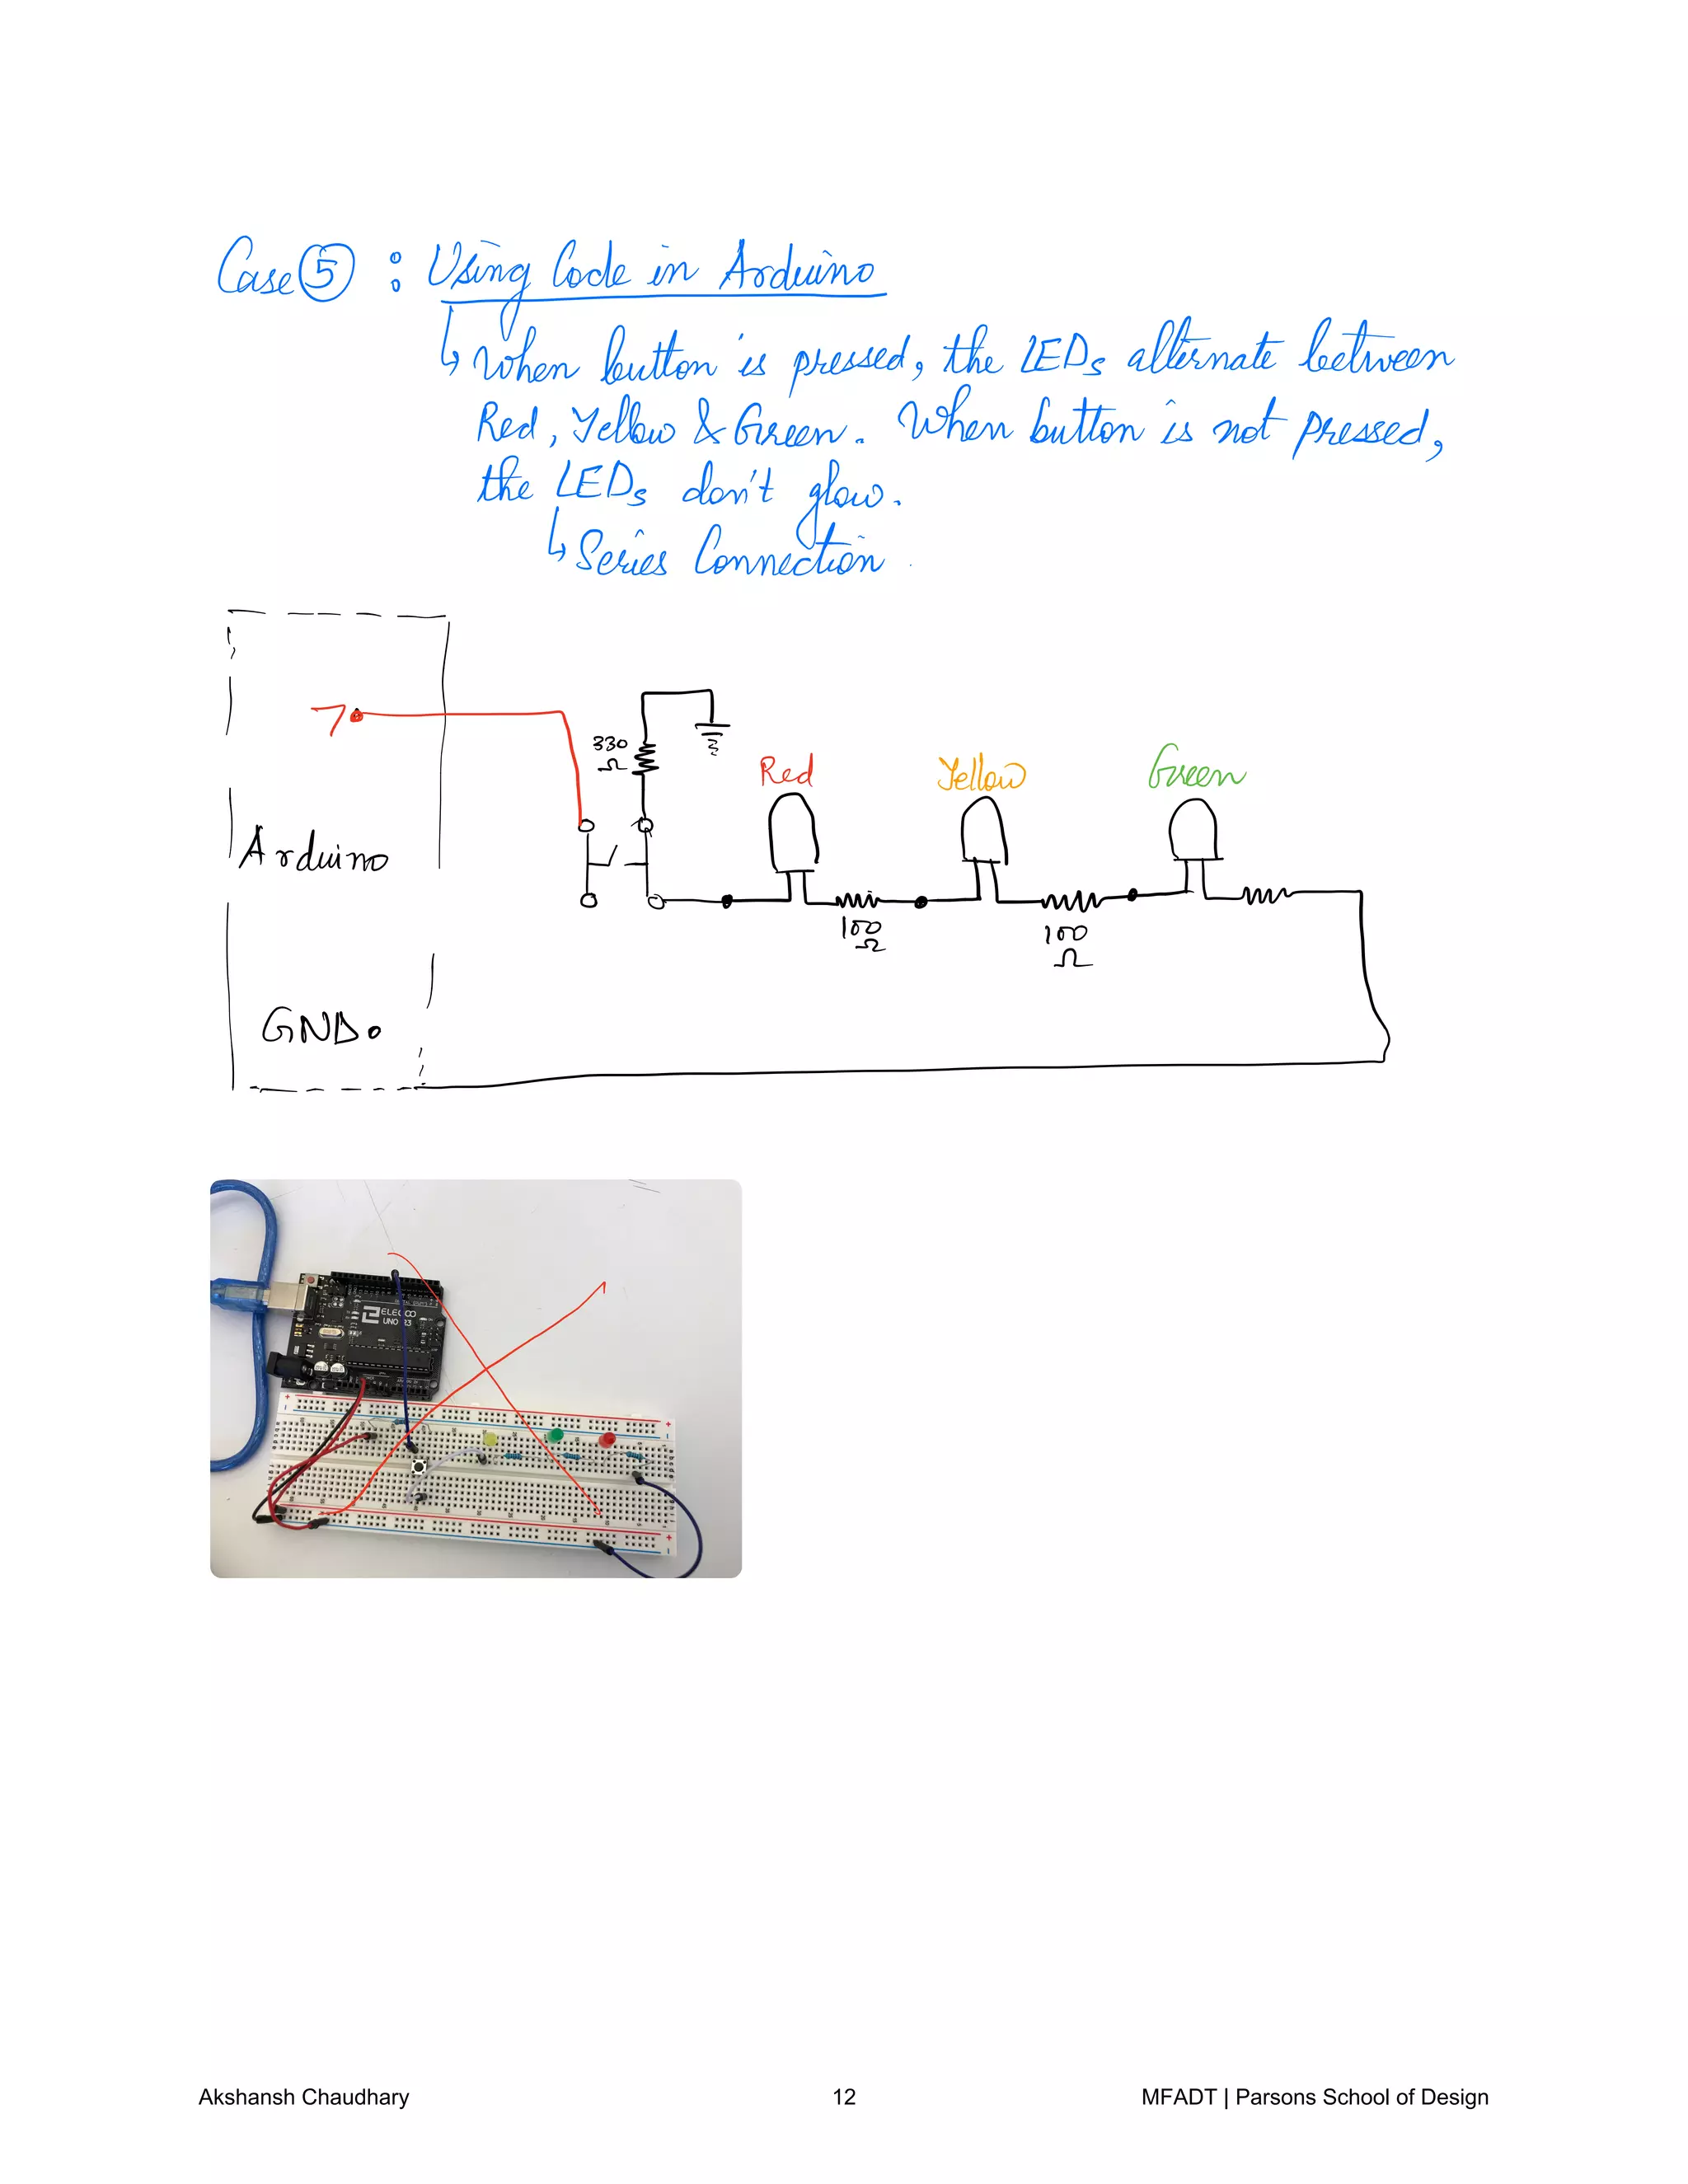 Case 5 : Using Code in Arduino
↳ When button is pressed, the LEDs alternate between
Red, Yellow & Green. When button is not pressed,
the LEDs don't glow.
↳ Series Connection
7
330
Ω
Red
Yellow
Green
Arduino
100
Ω
100
Ω
GND
ELEGOO
UNO R3
Akshansh Chaudhary
12
MFADT | Parsons School of Design